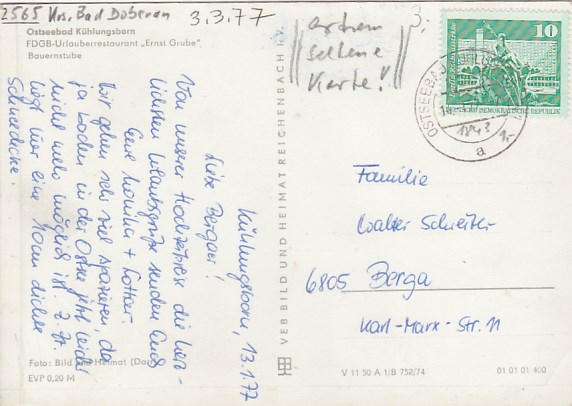 2565 Krs. Bad Doberan
3.3.77
Ostseebad Kühlungsborn
FDGB-Urlauberrestaurant „Ernst Grube“,
Bauernstube
extrem
seltene
Karte!
3,-
10
DEUTSCHE DEMOKRATISCHE REPUBLIK
OSTSEEBAD KÜHLUNGSBORN
a
1843
1,-
Kühlungsborn, 13.1.77
Liebe Bergaer!
Von unserer Hochzeitsreise die herz-
lichsten Urlaubsgrüße senden Euch
Eure Monika + Lothar.
Wir gehen sehr viel spazieren, da
ja baden in der Ostsee jetzt leider
nicht mehr möglich ist. Z. Zt.
liegt hier eine 10cm dicke
Schneedecke.
Familie
Walter Schreiter
6805 Berga
Karl-Marx-Str. 11
VEB BILD UND HEIMAT REICHENBACH i. V.
Foto: Bild und Heimat
EVP 0,20 M
V 11 50 A 1/B 752/74
01 01 01 400